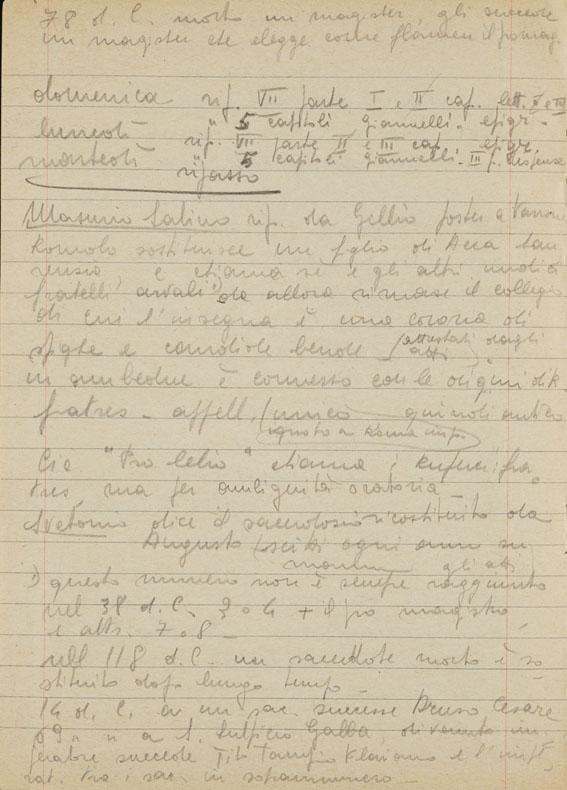 78 d. C. morto un magister, gli succede
un magister che elegge come flamen il
domenica rip. VII parte I e II cap. lett. II e III
lunedì " 5 capitoli giannelli - epigr.
rip. VII parte II e III cap. epigr.
martedì " 5 capitoli giannelli - III p. dispense
ripasso
Masurio Sabino rip. da Gellio
Romolo sostituisce un figlio di Acca Lau
renzia, e chiama sè e gli altri undici
fratelli "arvali" da allora rimase il collegio
di cui l'insegna è una corona di
spighe e candide bende (attestati dagli
atti)
in ambedue è connesso con le origini di R.
fratres - appell. (unico quindi antico
questo a Roma imp.
Cic. "Pro Celio" chiama i luperci fra
tres, ma per ambiguità oratoria -
Svetonio dice il sacerdozio ricostituito da
Augusto (scitti ogni anno su
marmo gli atti
1) questo numero non è sempre raggiunto
nel 38 d. C. 3 o 4 + il pro magistro,
e altr. 7 o 8 -
nell 118 d. C. un sacerdote morto è so
stituito dopo lungo tempo -
14 d. C. a un sac. successe Druso Cesare
69 " " a S. Sulpicio Galba, divenuto im
peratore succede Tito Tampio Flaviano e l'imp
rat. tra i sac. in soprannumero -